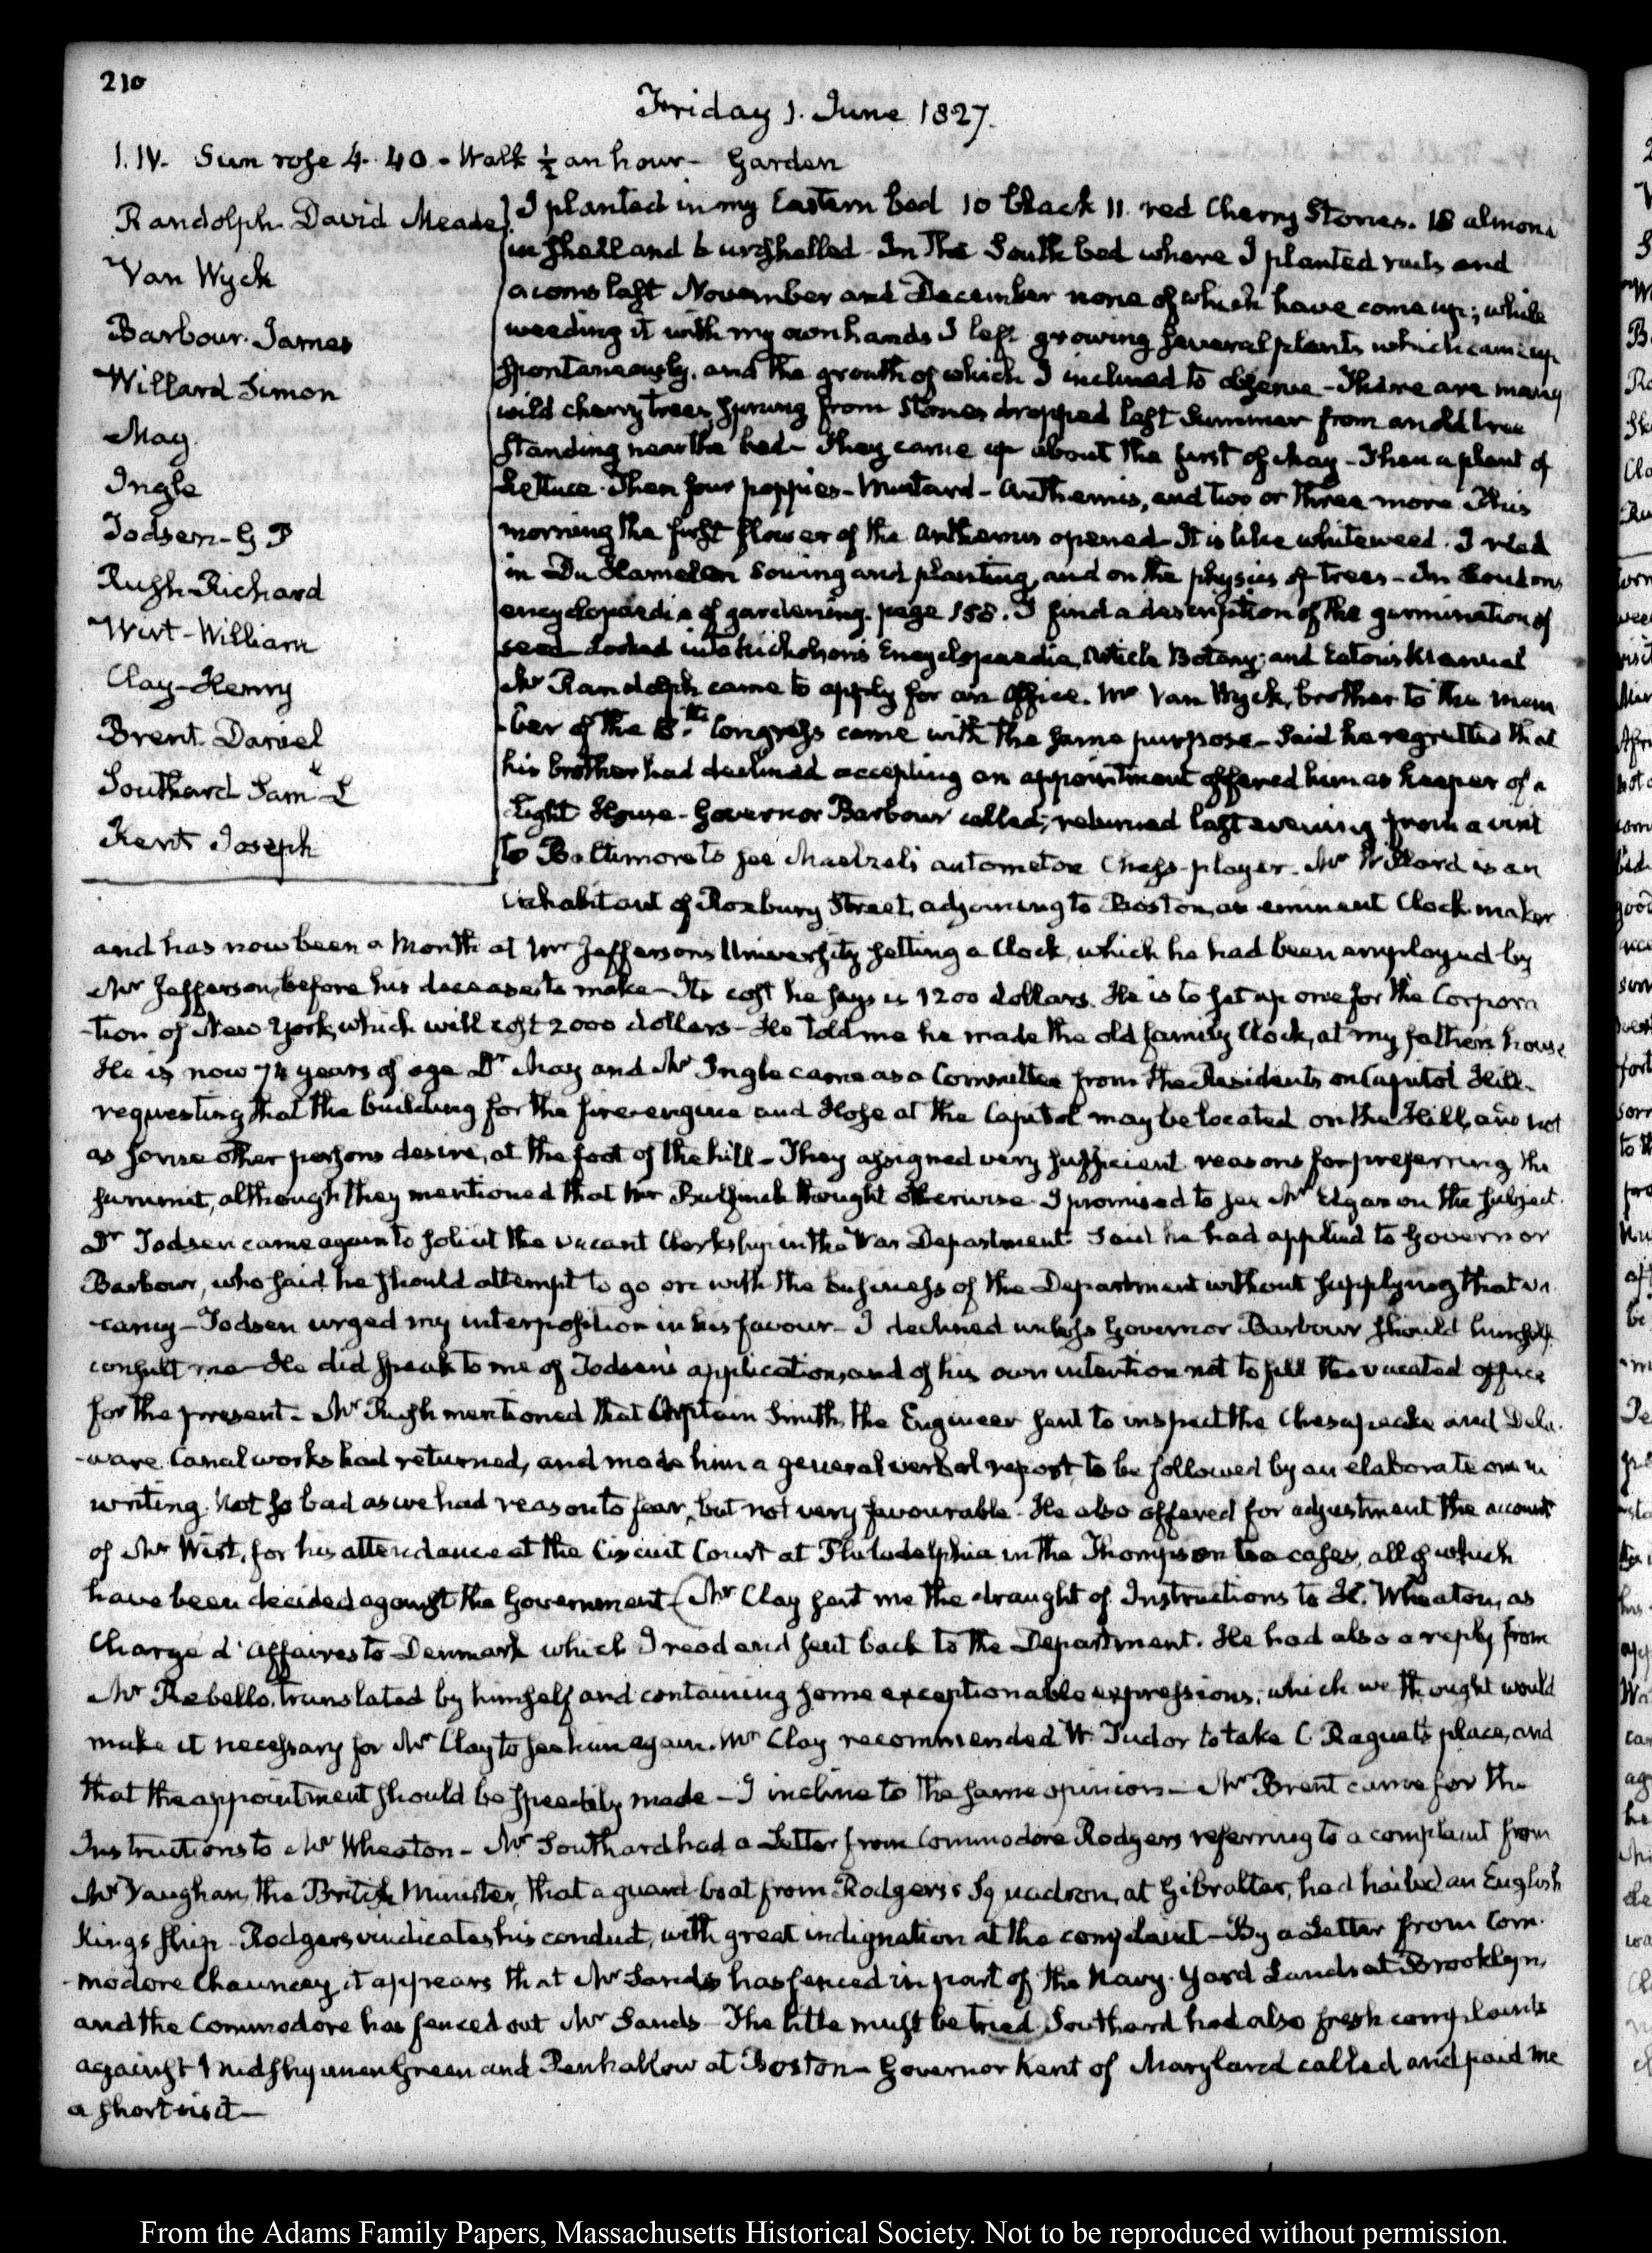 210
Friday 1. June 1827.
1. IV. Sun rose 4. 40. Walk ½ an hour - Garden
Randolph. David Meade
Van Wyck
Barbour. James
Willard Simon
May
Ingle
Todsen - G P
Rush - Richard
Wirt - William
Clay - Henry
Brent. Daniel
Southard Sam.l L
Kent Joseph
I planted in my Eastern bed 10 black 11. red Cherry Stones. 18 almond
in shell and 6 unshelled - In the South bed where I planted nuts and
acorns last November and December none of which have come up; while
weeding it with my own hands I left growing several plants which came up
spontaneously. and the growth of which I inclined to observe - There are many
wild cherry trees, sprung from Stones dropped last Summer from an old tree
standing near the bed - They came up about the first of May - Then a plant of
Lettuce. Then four poppies - Mustard - Anthemis, and two or three more This
morning the first flower of the Anthemis opened - It is like whiteweed. I read
in Du Hamel on Sowing and planting, and on the physics of trees - In Loudons
encyclopaedia of gardening. page 158. I find a description of the germination of
seed - looked into Nicholson's Encyclopaedia, Article Botany; and Eaton's Manual
Mr Randolph came to apply for an Office. Mr Van Wyck, brother to the mem
-ber of the 18.th Congress came with the same purpose - Said he regretted that
his brother had declined accepting an appointment offered him as keeper of a
Light House - Governor Barbour called; returned last evening from a visit
to Baltimore to see Maelzel's automaton Chess-player. Mr Willard is an
inhabitant of Roxbury Street, adjoining to Boston, an eminent Clock maker
and has now been a Month at Mr Jeffersons University setting a Clock, which he had been employed by
Mr Jefferson, before his decease to make - Its cost he says is 1200 dollars. He is to set up one for the Corpora
-tion of New York, which will cost 2000 dollars - He told me he made the old family Clock, at my father's house
He is now 74 years of age Dr May and Mr Ingle came as a Committee from the Residents on Capitol Hill.
requesting that the building for the fire-engine and Hose at the Capitol may be located on the Hill, and not
as some other persons desire, at the foot of the hill - They assigned very sufficient reasons for preferring the
summit, although they mentioned that Mr Bulfinch thought otherwise. I promised to see Mr Elgar on the subject.
Dr Todsen came again to solicit the vacant Clerkship in the War Department. Said he had applied to Governor
Barbour, who said he should attempt to go on with the business of the Department without supplying that va
-cancy - Todsen urged my interposition in his favour - I declined unless Governor Barbour should himself
consult me - He did speak to me of Todsen's application, and of his own intention not to fill the vacated office
for the present. Mr Rush mentioned that Captain Smith, the Engineer sent to inspect the Chesapeake and Dela
-ware Canal works had returned, and made him a general verbal report, to be followed by an elaborate one in
writing. Not so bad as we had reason to fear, but not very favourable. He also offered for adjustment the account
of Mr Wirt, for his attendance at the Circuit Court at Philadelphia in the Thompson tea cases, all of which
have been decided against the Government - (Mr Clay sent me the draught of Instructions to H. Wheaton, as
Charge d'Affaires to Denmark which I read and sent back to the Department. He had also a reply from
Mr Rebello. translated by himself and containing some exceptionable expressions; which we thought would
make it necessary for Mr Clay to see him again. Mr Clay recommended W. Tudor to take C. Raguet's place, and
that the appointment should be speedily made - I incline to the same opinion - Mr Brent came for the
Instructions to Mr Wheaton - Mr Southard had a Letter from Commodore Rodgers referring to a complaint from
Mr Vaughan, the British Minister, that a guard-boat from Rodgers's Squadron, at Gibraltar, had hailed an English
Kings ship - Rodgers vindicates his conduct, with great indignation at the complaint - By a Letter from Com
-modore Chauncey, it appears that Mr Sands has fenced in part of the Navy-Yard Lands at Brooklyn,
and the Commodore has fenced out Mr Sands - The title must be tried Southard had also fresh complaints
against Midshipmen Green and Penhallow at Boston - Governor Kent of Maryland called and paid me
a short visit -
From the Adams Family Papers, Massachusetts Historical Society. Not to be reproduced without permission.